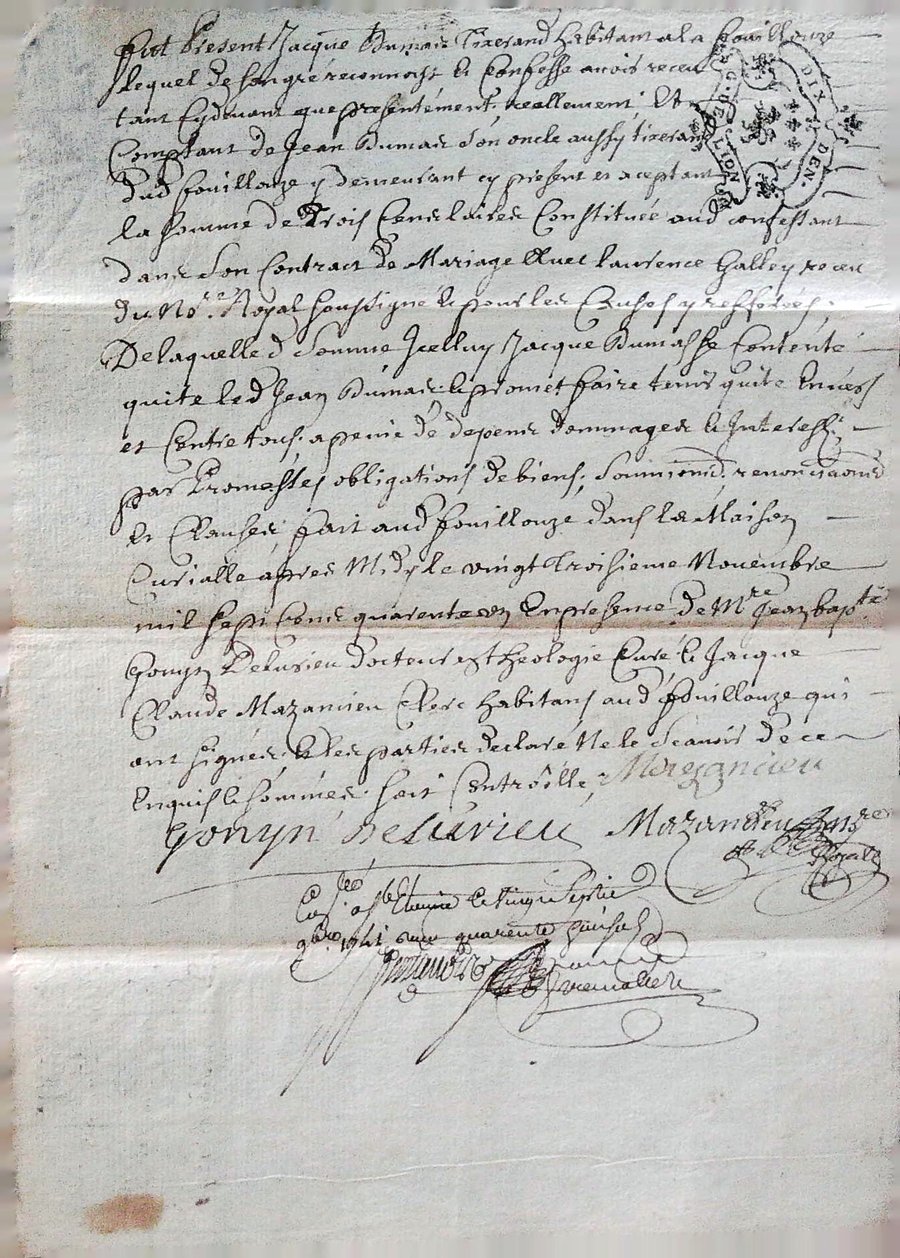 fut present Jacque Dumas tixerand habitant a la fouillouze
Lequel de son gré reconnoist & Confesse avoir receu
tant Cydevant que presentement, reallement, Et
Comptant de Jean Dumas son oncle aussy tixerand
dud fouillouze y demeurant cy present et aceptant
la somme de Trois Cens livres Constituée aud confessant
dans son Contract de Mariage Avec laurence Galley receu
du No.re Royal soussigné & pour les Causes y refferées,
De laquelle d somme Jcelluy Jacque Dumas se Contente
quite led Jean Dumas & promet faire tenir quite Envers
et Contre tous, a peine de depens dommages & Interests,
par Promesses obligations de biens, soumissions, renonciations
et Clauses, fait aud fouillouze dans la Maison
Curialle apres Midy le vingt Troisieme Novembre
mil sept Cens quarente un En presence de Mre Jean bapte
Gonyn Delurieu docteur en theologie Curé & Jacque
Claude Mazancieu Clerc habitans aud fouillouze qui
ont signés, & les parties declaré Ne le scavoir de ce
Enquis & sommés. soit Controllé, Mazancieu
Gonyn Delurieu Mazancieu nre
Royal
C. DE LION
DIX DEN.
le vingt septie
9bre 1741 quarente